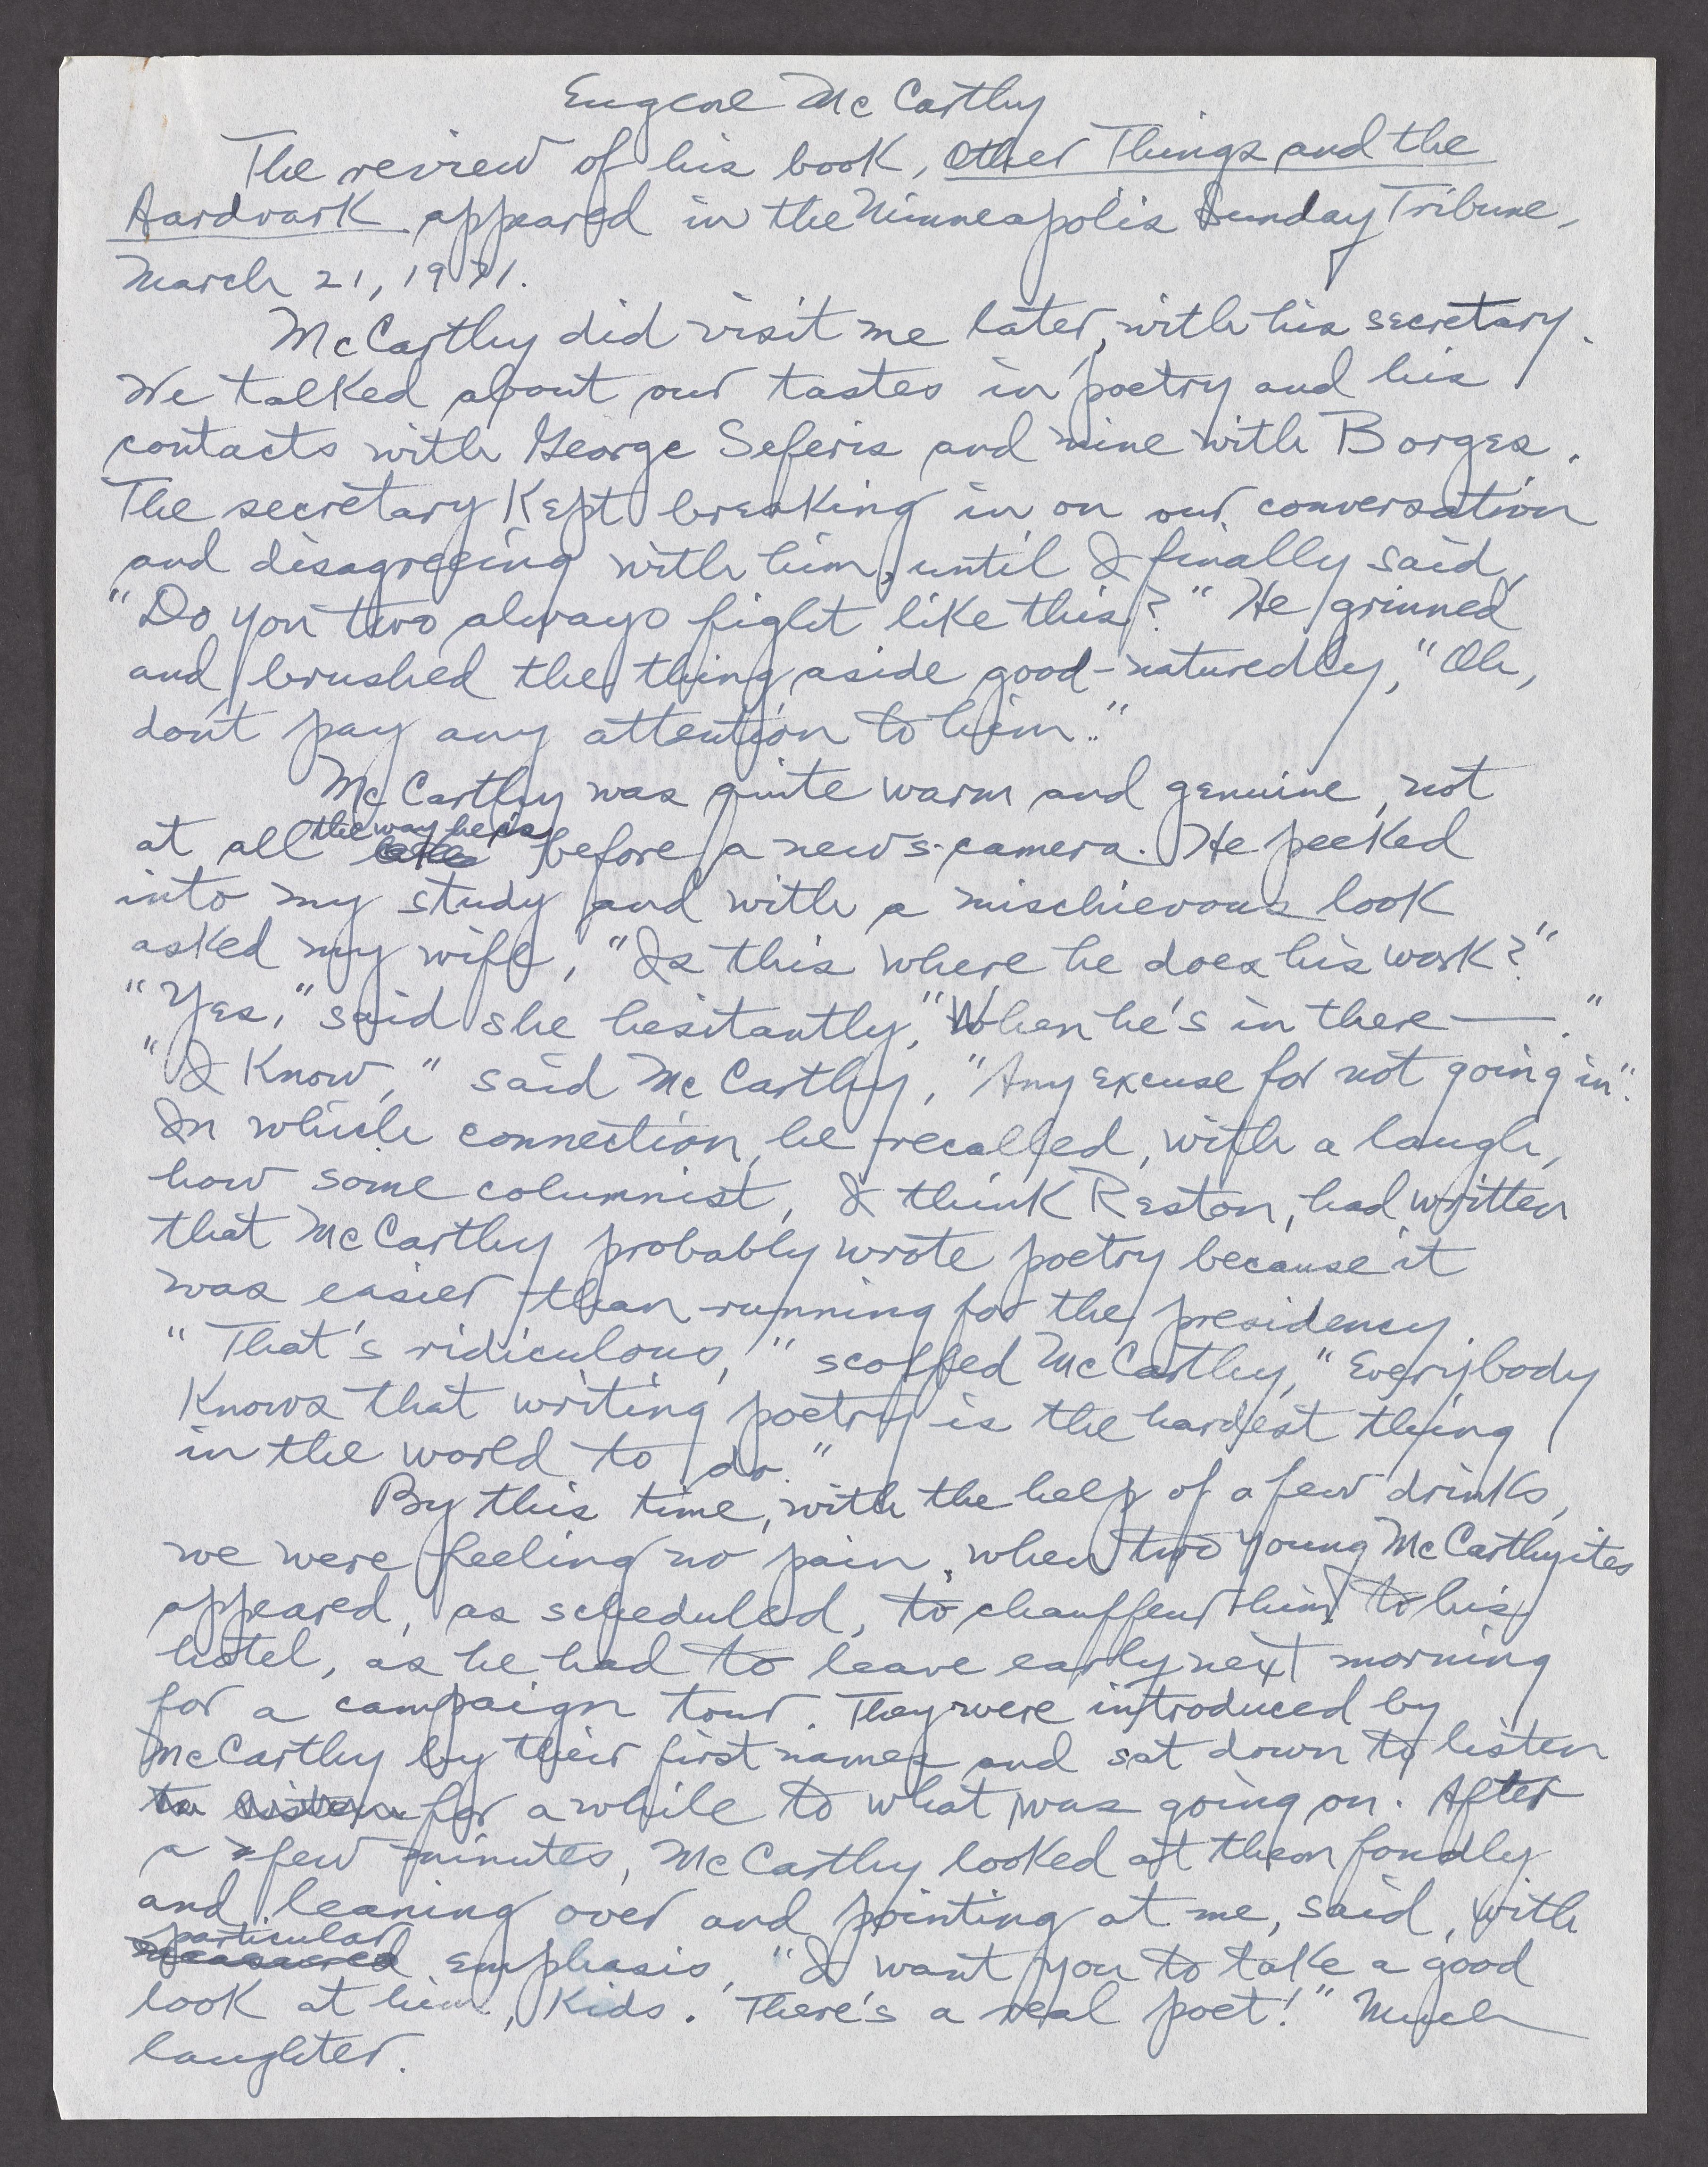 Eugene McCarthy
The review of his book, Other Things and the
Aardvark appeared in the Minneapolis Sunday Tribune,
March 21, 1971.
McCarthy did visit me later, with his secretary.
We talked about our tastes in poetry and his
contacts with George Seferis and mine with Borges.
The secretary kept breaking in on our conversation
and disagreeing with him, until I finally said,
"Do you two always fight like this?" He grinned
and brushed the thing aside good-naturedly, "Oh,
don't pay any attention to him."
McCarthy was quite warm and genuine, not
at all the way he is before a news-camera. He peeked
into my study and with a mischievous look
asked my wife, "Is this where he does his work?"
"Yes," said she hesitantly, "When he's in there —."
"I know," said McCarthy, "Any excuse for not going in".
In which connection, he recalled, with a laugh,
how some columnist, I think Reston, had written
that McCarthy probably wrote poetry because it
was easier than running for the presidency.
"That's ridiculous," scoffed McCarthy, "Everybody
knows that writing poetry is the hardest thing
in the world to do."
By this time, with the help of a few drinks,
we were feeling no pain, when two young McCarthyites
appeared, as scheduled, to chauffeur him to his
hotel, as he had to leave early next morning
for a campaign tour. They were introduced by
McCarthy by their first names and sat down to listen
to listen for a while to what was going on. After
a few minutes, McCarthy looked at them fondly
and leaning over and pointing at me, said, with
particular emphasis, "I want you to take a good
look at him, kids. There's a real poet!" Much
laughter.